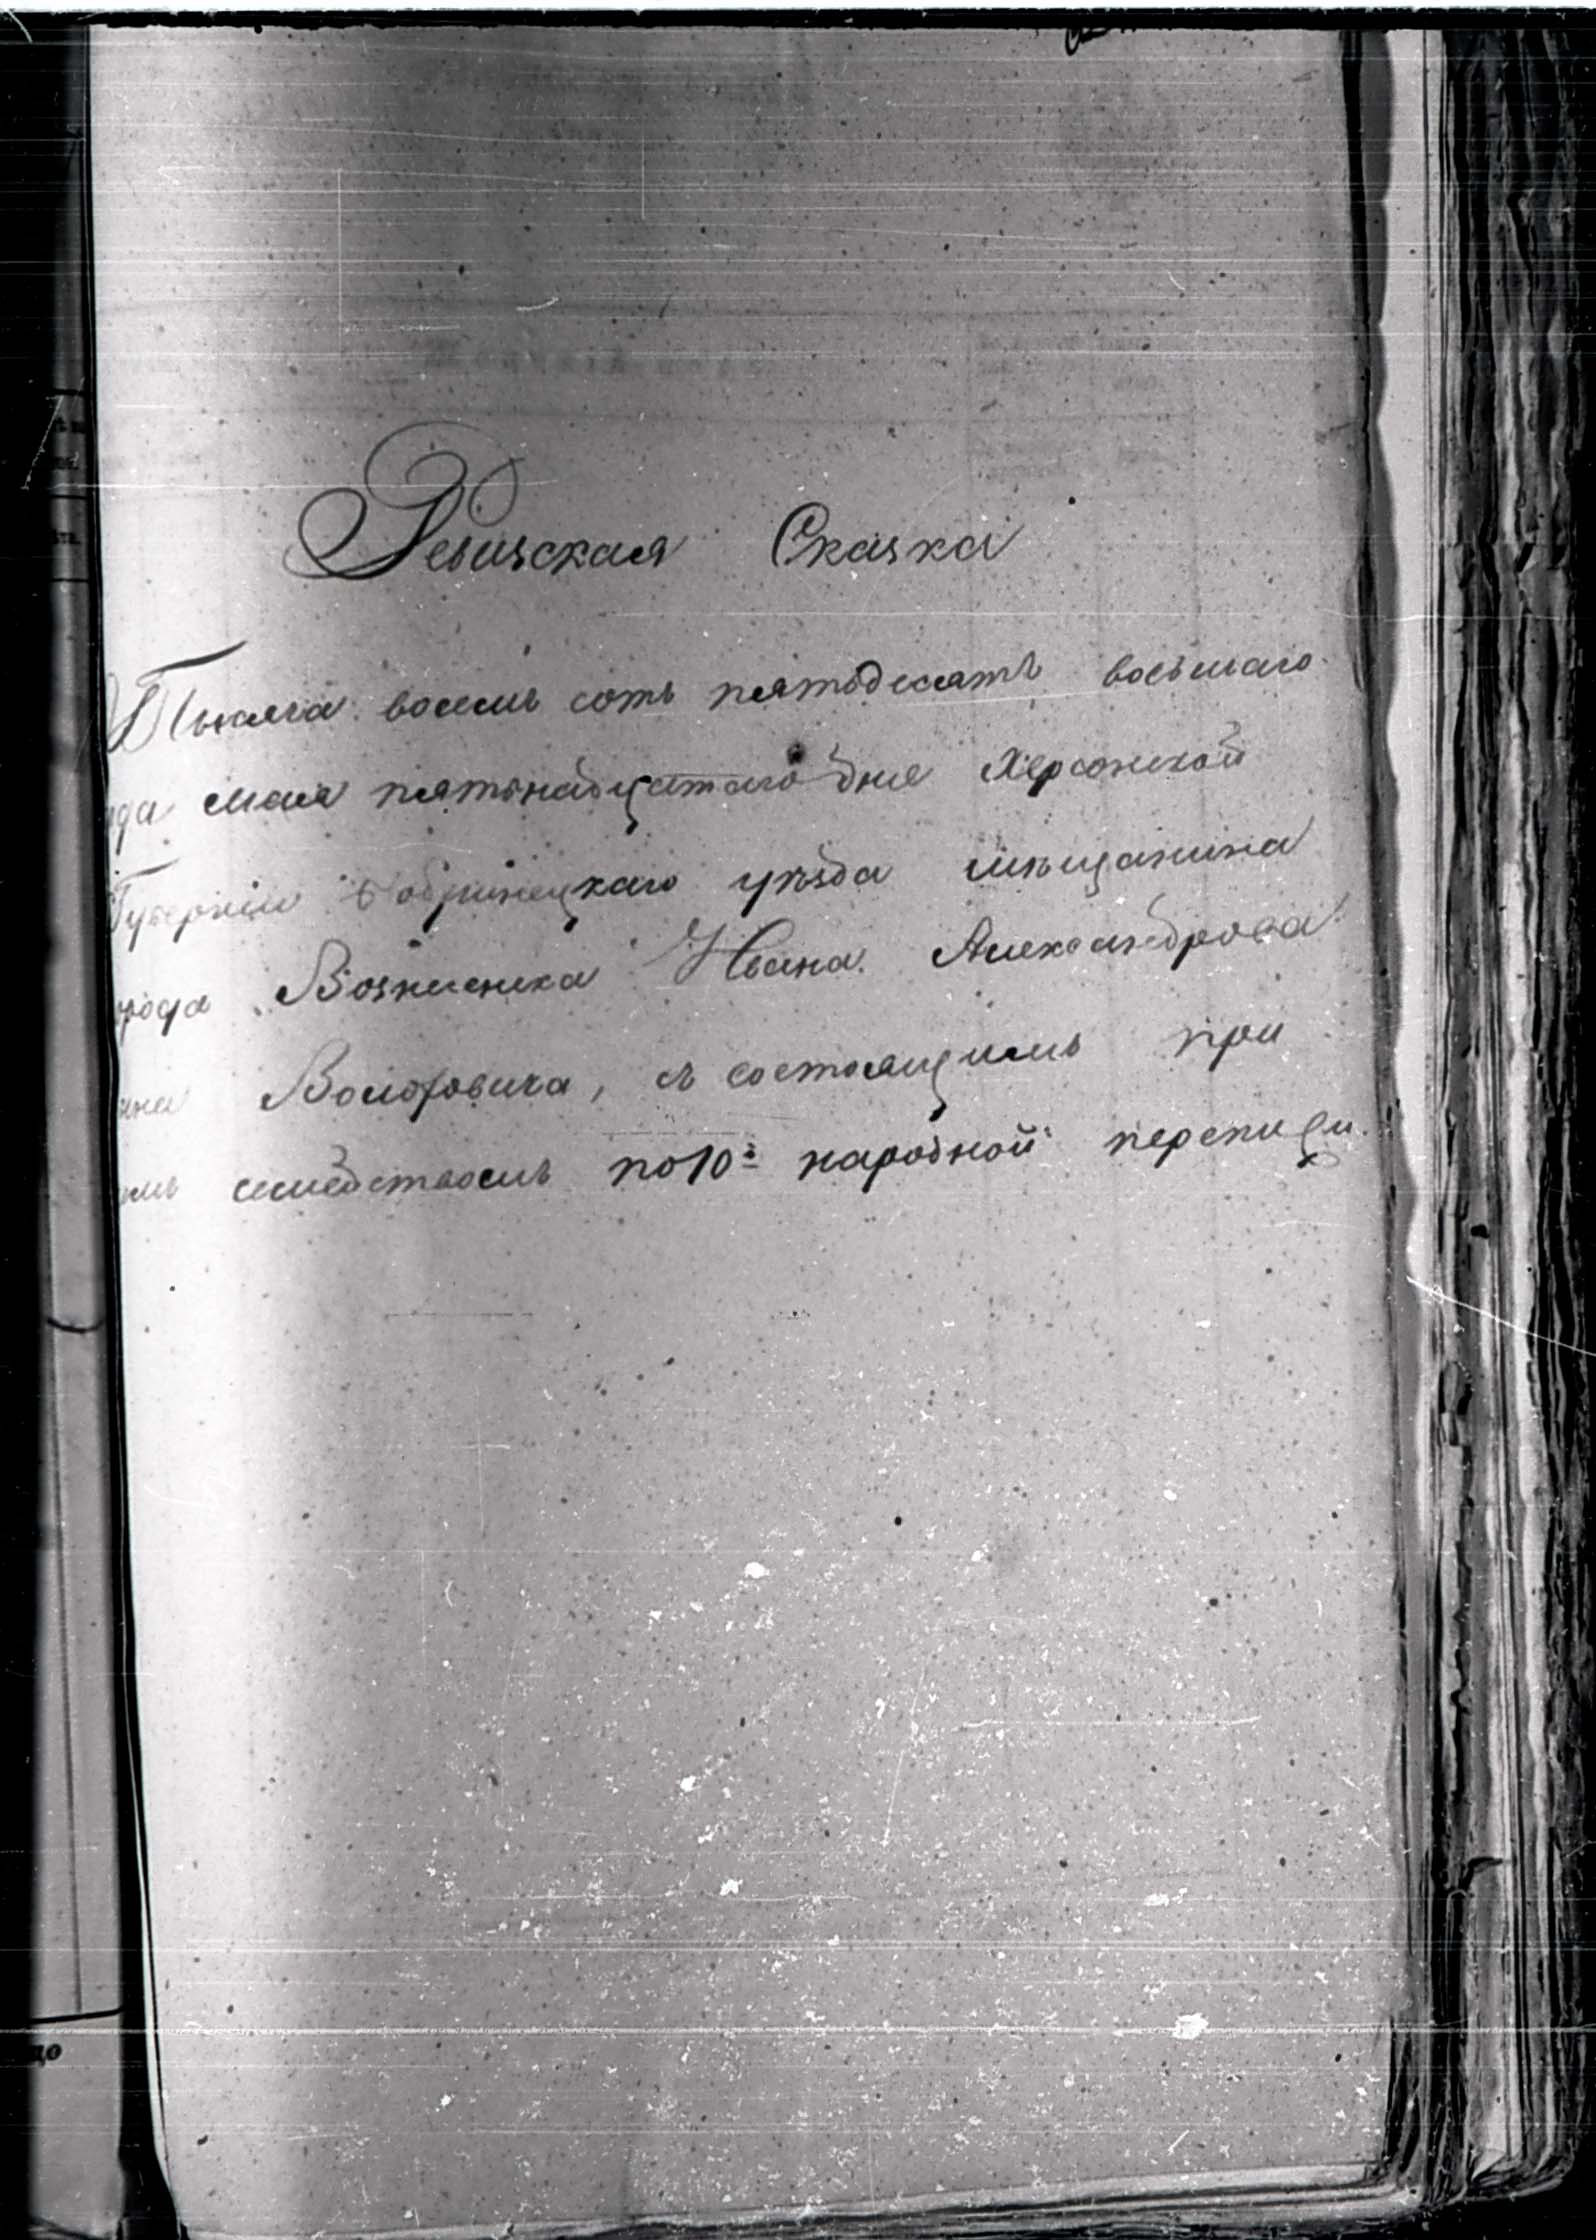 Ревизская Сказка
Тысяча восемь сотъ пятьдесятъ восьмаго
да мая пятьнадцатаго дня Херсонской
Губерніи Бобринецкаго уѣзда мѣщанина
рода Вознесенска Ивана Александрова
Волофовича, съ состоящимъ при
мъ семѣдствомъ по 10й народной переписи.
до